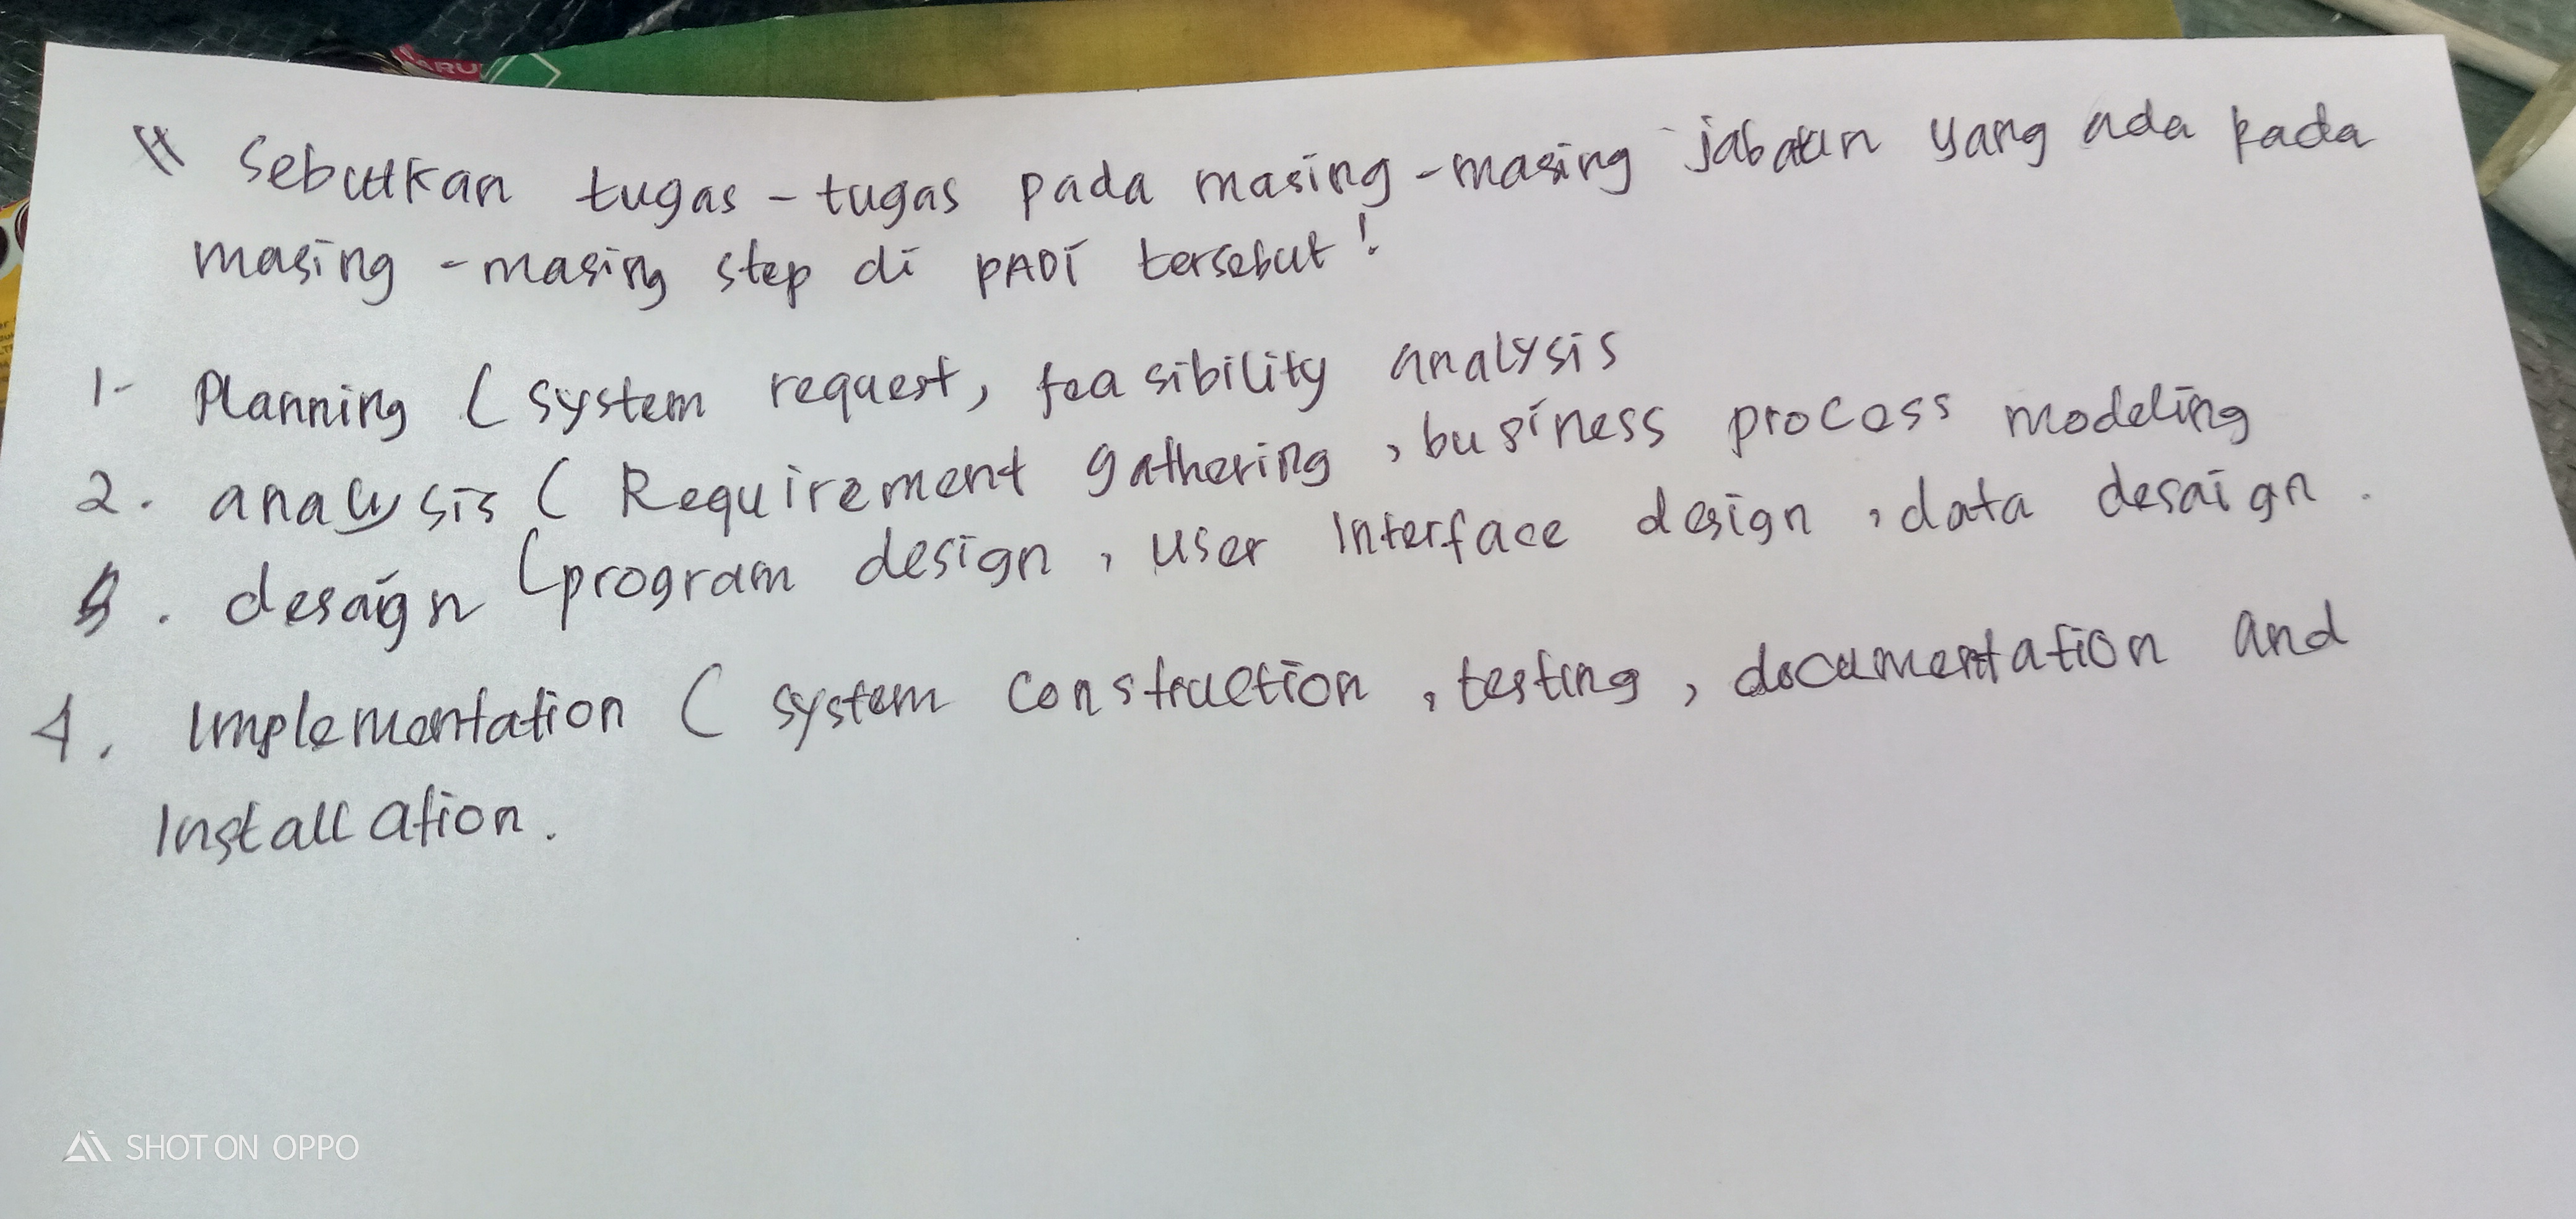 * Sebutkan tugas-tugas pada masing-masing jabatan yang ada pada
masing-masing step di PADI tersebut!
1- Planning ( system request, feasibility analysis
2. analysis ( Requirement gathering, business process modeling
. desaign (program design, user interface design, data desaign.
4. Implementation ( system construction, testing, documentation and
Installcation.
SHOT ON OPPO